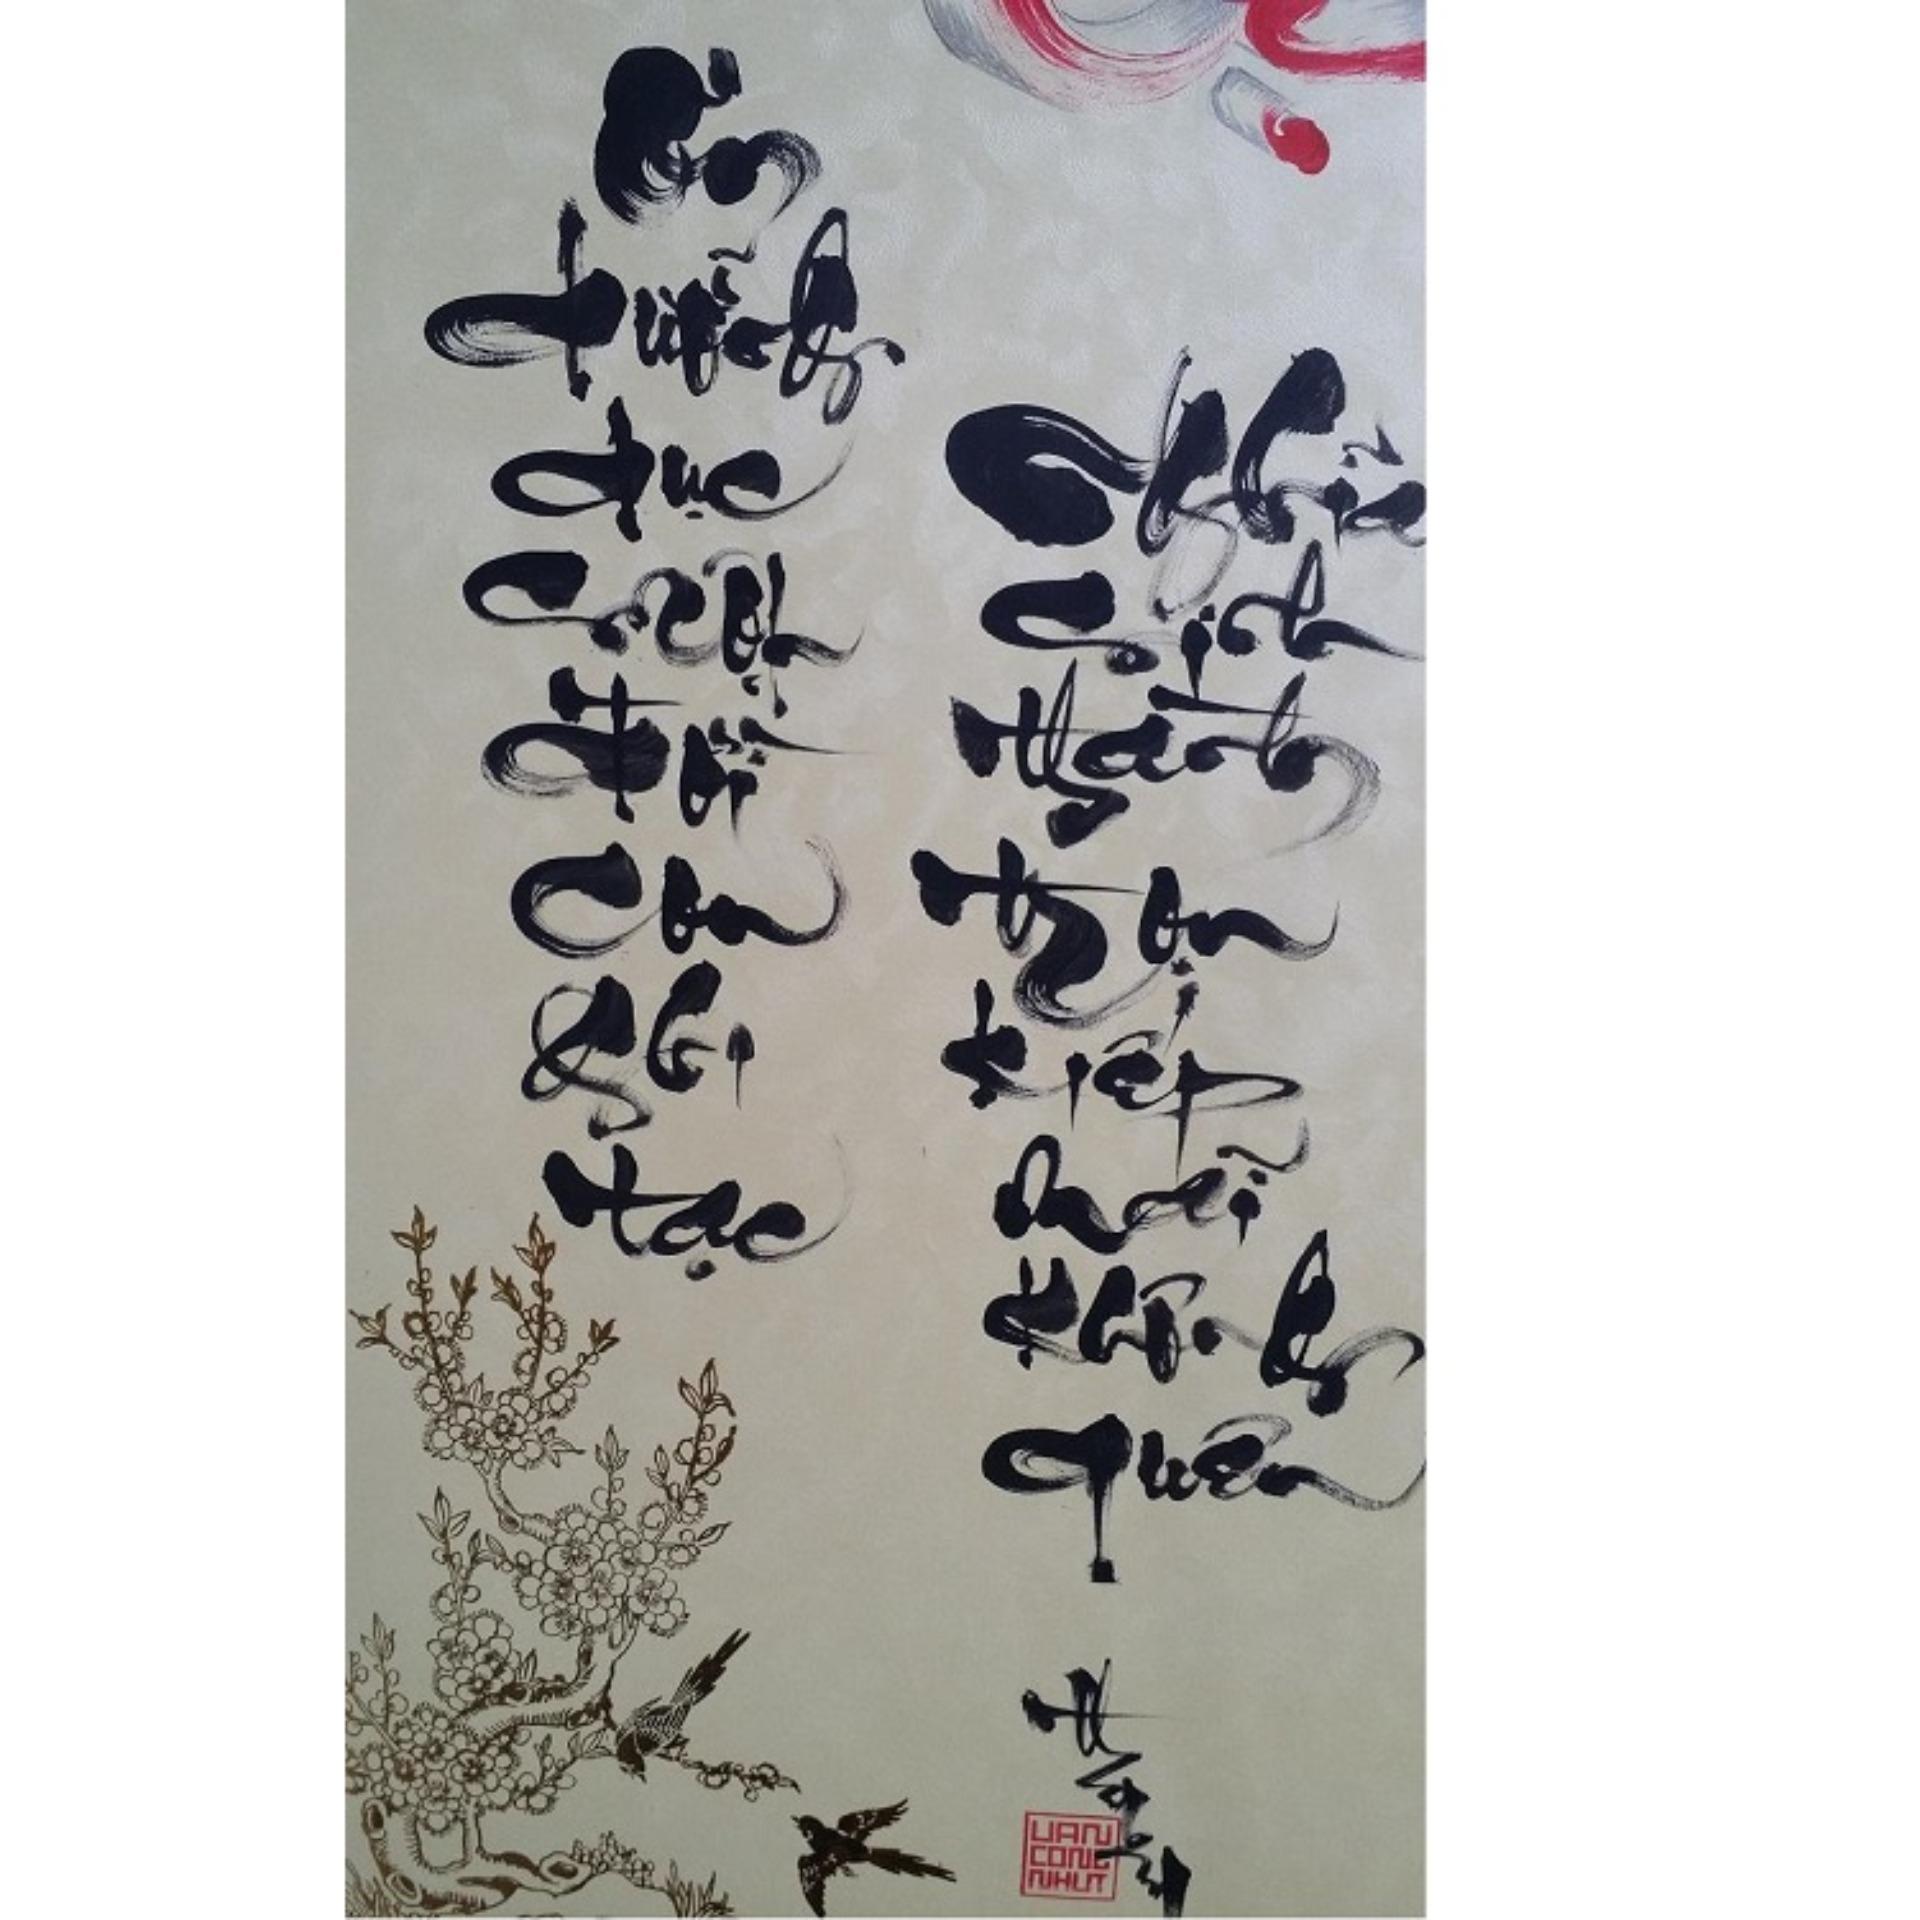 Ơn
dưỡng
dục
suốt
đời
con
ghi
tạc
Nghĩa
sinh
thành
trọn
kiếp
mãi
không
quên
VAN
CONG
NHUT